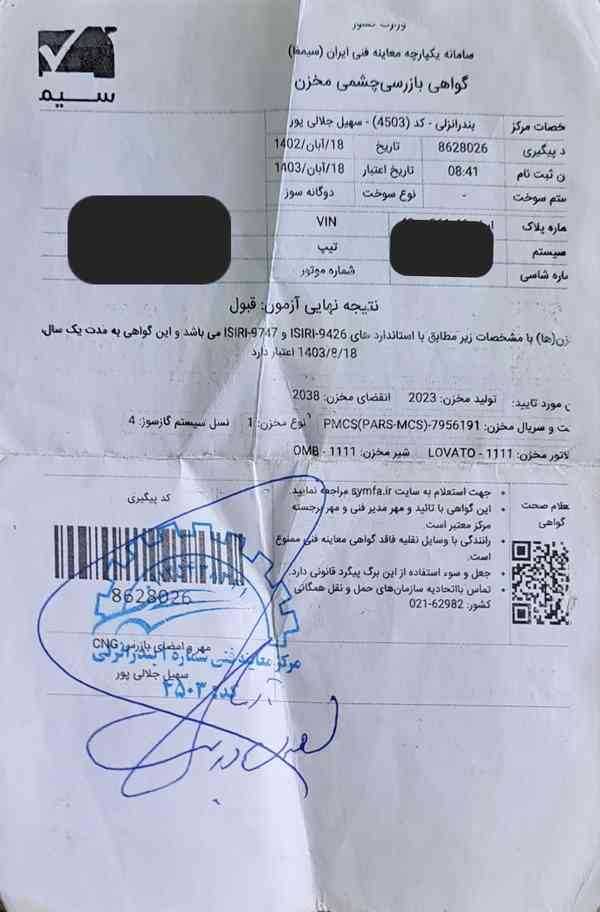 وزارت کشور
سامانه یکپارچه معاینه فنی ایران (سیمفا)
گواهی بازرسی چشمی مخزن
سیم
خصات مرکز بندرانزلی - کد (4503) - سهیل جلالی پور
د پیگیری 8628026 تاریخ 18/آبان/1402
ن ثبت نام 08:41 تاریخ اعتبار 18/آبان/1403
ستم سوخت - نوع سوخت دوگانه سوز
ماره پلاک VIN
سیستم تیپ
ماره شاسی شماره موتور
نتیجه نهایی آزمون: قبول
زن(ها) با مشخصات زیر مطابق با استاندارد های ISIRI-9426 و ISIRI-9747 می باشد و این گواهی به مدت یک سال،
1403/8/18 اعتبار دارد
ن مورد تایید: تولید مخزن: 2023 انقضای مخزن: 2038
ت و سریال مخزن: PMCS(PARS-MCS)-7956191 نوع مخزن: 1 نسل سیستم گازسوز: 4
لاتور مخزن: LOVATO - 1111 شیر مخزن: OMB - 1111
علام صحت
گواهی
جهت استعلام به سایت symfa.ir مراجعه نمایید.
این گواهی با تائید و مهر مدیر فنی و مهر برجسته
مرکز معتبر است.
رانندگی با وسایل نقلیه فاقد گواهی معاینه فنی ممنوع
است.
جعل و سوء استفاده از این برگ پیگرد قانونی دارد.
تماس بااتحادیه سازمان‌های حمل و نقل همگانی
کشور: 62982-021
کد پیگیری
8628026
مهر و امضای بازرس CNG
سهیل جلالی پور
مرکز معاینه فنی ستاره ۱ بندرانزلی
کد: ۴۵۰۳